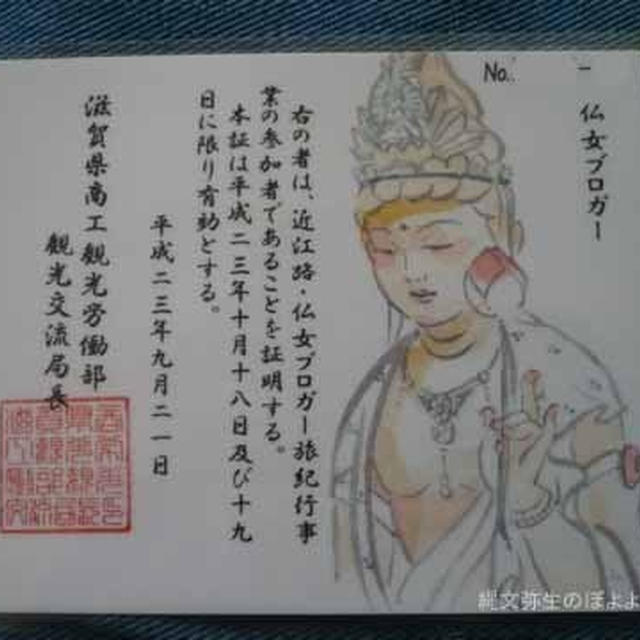 No. -
仏女ブロガー
右の者は、近江路・仏女ブロガー旅紀行事
業の参加者であることを証明する。
本証は平成二三年十月十八日及び十九
日に限り有効とする。
平成二三年九月二一日
滋賀県商工観光労働部
観光交流局長
縄文弥生のほよよ